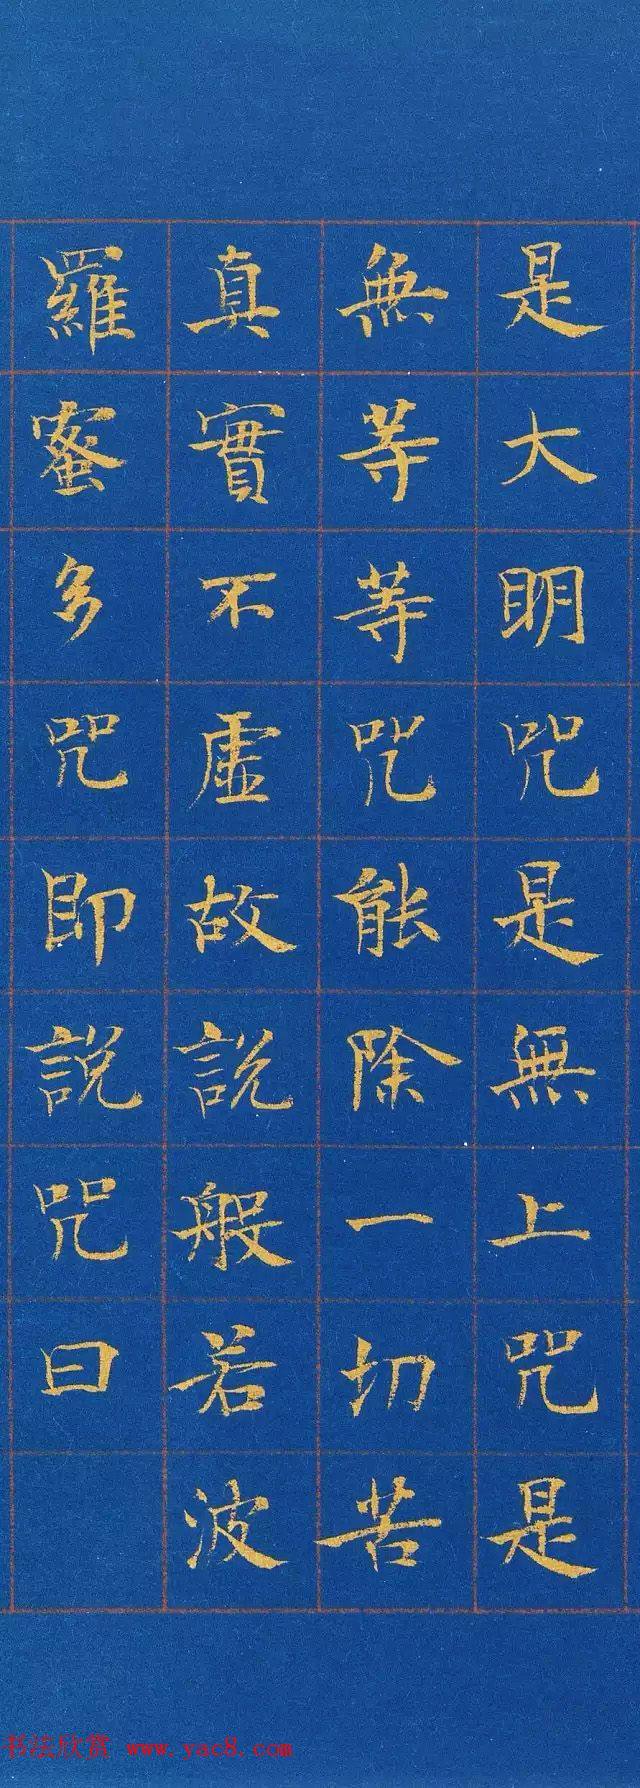 是大明咒是無上咒是
無等等咒能除一切苦
真實不虛故說般若波
羅蜜多咒即說咒曰
书法欣赏 www.yac8.com